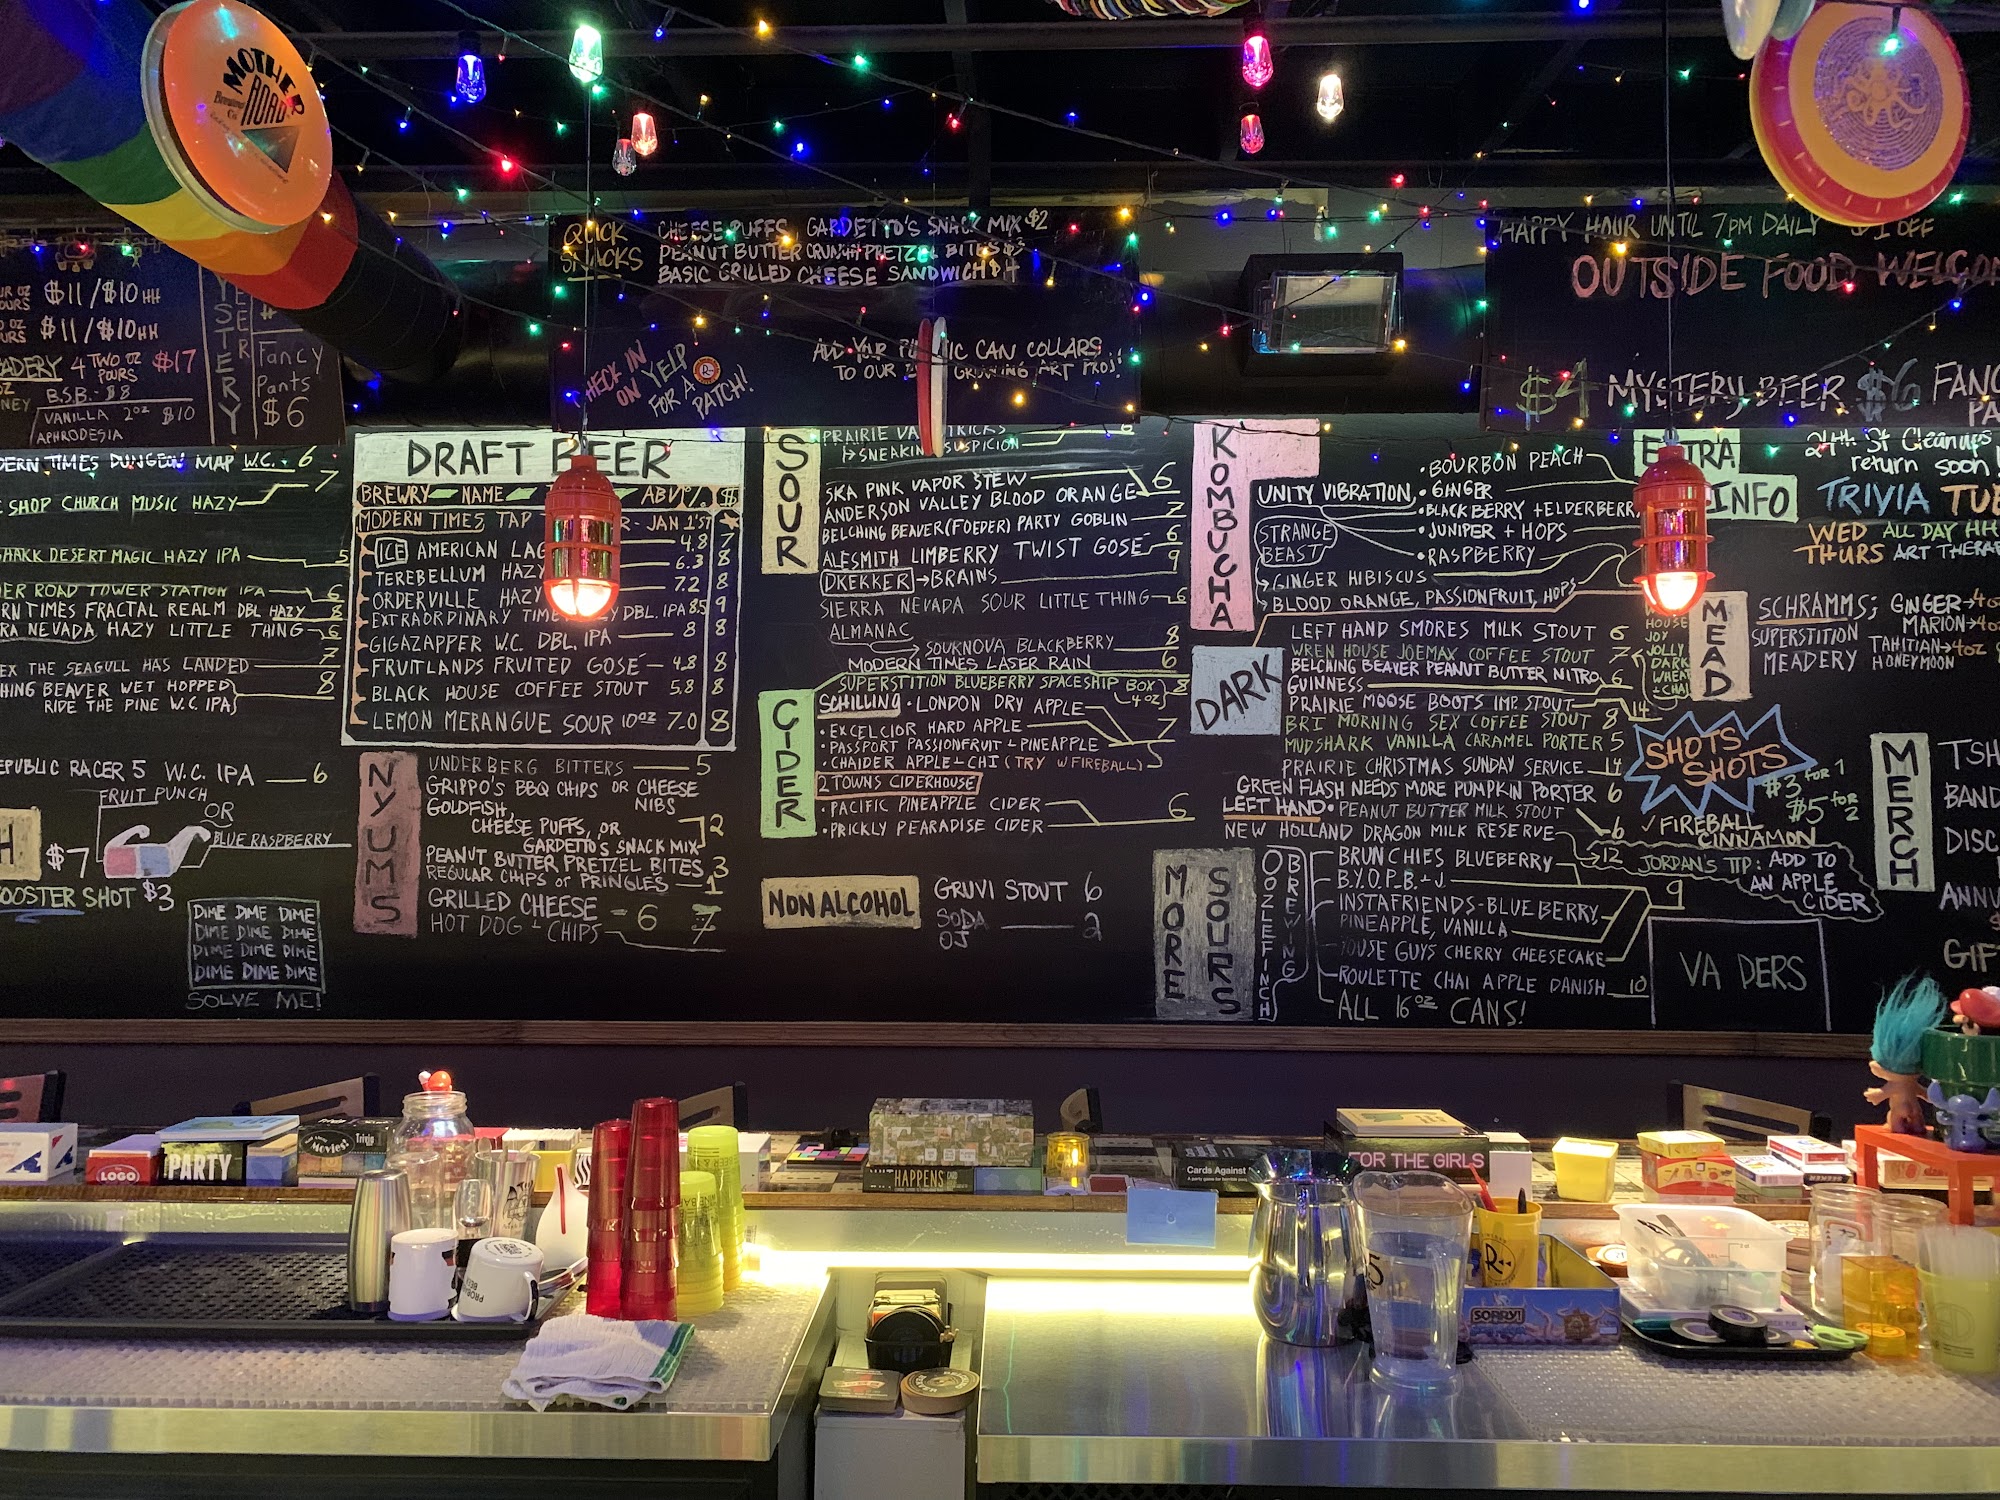 MOTHER
ROAD
Brewing
Co
$11/$10 HH
$11/$10 HH
4 TWO OZ $17
POURS
B.S.B. - $8
VANILLA 2oz $10
APHRODESIA
Fancy
Pants
$6
QUICK
SNACKS
CHEESE PUFFS, GARDETTO'S SNACK MIX $2
PEANUT BUTTER CRUNCH PRETZEL BITES $3
BASIC GRILLED CHEESE SANDWICH $4
CHECK IN
ON YELP
FOR A
PATCH!
ADD YOUR
CAN COLLARS
TO OUR
GROWING ART PROJ!
HAPPY HOUR UNTIL 7PM DAILY $1 OFF
OUTSIDE FOOD
$4 MYSTERY BEER $6
DERN TIMES DUNGEON MAP W.C. - 6
SHOP CHURCH MUSIC HAZY 7
SHARK DESERT MAGIC HAZY IPA 5
ER ROAD TOWER STATION IPA 6
RN TIMES FRACTAL REALM DBL HAZY 8
RA NEVADA HAZY LITTLE THING 6
EX THE SEAGULL HAS LANDED 7
HING BEAVER WET HOPPED 8
RIDE THE PINE W.C. IPA
EPUBLIC RACER 5 W.C. IPA 6
FRUIT PUNCH
OR
BLUE RASPBERRY
$7
OOSTER SHOT $3
DIME DIME DIME
DIME DIME DIME
DIME DIME DIME
DIME DIME DIME
SOLVE ME!
DRAFT BEER
BREWRY NAME ABV% $
MODERN TIMES TAP
R - JAN 1'ST
ICE AMERICAN LAG 4.8 7
TEREBELLUM HAZY 6.3 8
ORDERVILLE HAZY 7.2 8
EXTRAORDINARY TIME DBL. IPA 8.5 9
GIGAZAPPER W.C. DBL. IPA 8 8
FRUITLANDS FRUITED GOSÉ 4.8 8
BLACK HOUSE COFFEE STOUT 5.8 8
LEMON MERANGUE SOUR 10oz 7.0 8
NYUMS
UNDERBERG BITTERS 5
GRIPPO'S BBQ CHIPS OR CHEESE
NIBS
GOLDFISH,
CHEESE PUFFS, OR
GARDETTO'S SNACK MIX 2
PEANUT BUTTER PRETZEL BITES 3
REGULAR CHIPS or PRINGLES 1
GRILLED CHEESE - 6
HOT DOG + CHIPS 7
SOUR
SNEAKING SUSPICION
SKA PINK VAPOR STEW 6
ANDERSON VALLEY BLOOD ORANGE
BELCHING BEAVER (FOEDER) PARTY GOBLIN 7
ALESMITH LIMBERRY TWIST GOSÉ 6
DREKKER → BRAINS 9
SIERRA NEVADA SOUR LITTLE THING 6
ALMANAC
SOUKNOVA BLACKBERRY 8
MODERN TIMES LASER RAIN 6
CIDER
SUPERSTITION BLUEBERRY SPACESHIP BOX 8
(4oz)
SCHILLING · LONDON DRY APPLE
· EXCELCIOR HARD APPLE 7
· PASSPORT PASSIONFRUIT + PINEAPPLE
· CHAIDER APPLE-CHI (TRY W FIREBALL) 5
2 TOWNS CIDERHOUSE
· PACIFIC PINEAPPLE CIDER 6
· PRICKLY PEARADISE CIDER
NON ALCOHOL
GRUVI STOUT 6
SODA 2
OJ
KOMBUCHA
UNITY VIBRATION
· BOURBON PEACH
· GINGER
· BLACKBERRY + ELDERBERR
· JUNIPER + HOPS
· RASPBERRY
STRANGE
BEAST
GINGER HIBISCUS
BLOOD ORANGE, PASSIONFRUIT, HOPS
DARK
LEFT HAND SMORES MILK STOUT 6
WREN HOUSE JOEMAX COFFEE STOUT 7
BELCHING BEAVER PEANUT BUTTER NITRO
GUINNESS 6
PRAIRIE MOOSE BOOTS IMP. STOUT 14
BRI MORNING SEX COFFEE STOUT 8
MUDSHARK VANILLA CARAMEL PORTER 5
PRAIRIE CHRISTMAS SUNDAY SERVICE 14
GREEN FLASH NEEDS MORE PUMPKIN PORTER 6
LEFT HAND · PEANUT BUTTER MILK STOUT 6
NEW HOLLAND DRAGON MILK RESERVE 12
HOUSE
JOY
JOLLY
DARK
WHEAT
+ CHAI
MORE SOURS
OOZLEFINCH
BREWING
BRUNCHIES BLUEBERRY
B.Y.O.P.B. + J 9
INSTAFRIENDS - BLUEBERRY,
PINEAPPLE, VANILLA
HOUSE GUYS CHERRY CHEESECAKE
ROULETTE CHAI APPLE DANISH 10
ALL 16oz CANS!
EXTRA
INFO
24th St Cleanups
return soon!
TRIVIA TUE
WED ALL DAY HH
THURS ART THERA
MEAD
SCHRAMMS; GINGER→4oz
MARION→4oz
SUPERSTITION
MEADERY
TAHITIAN→4oz
HONEYMOON
SHOTS
SHOTS
$3 for 1
$5 for 2
✓ FIREBALL
CINNAMON
JORDAN'S TIP: ADD TO
AN APPLE
CIDER
VA DERS
MERCH
TSH
BAND
DISC
ANNU
GIF
LOGO
PARTY
Movies!
Trivia
HAPPENS
Cards Against
FOR THE GIRLS
SORRY!